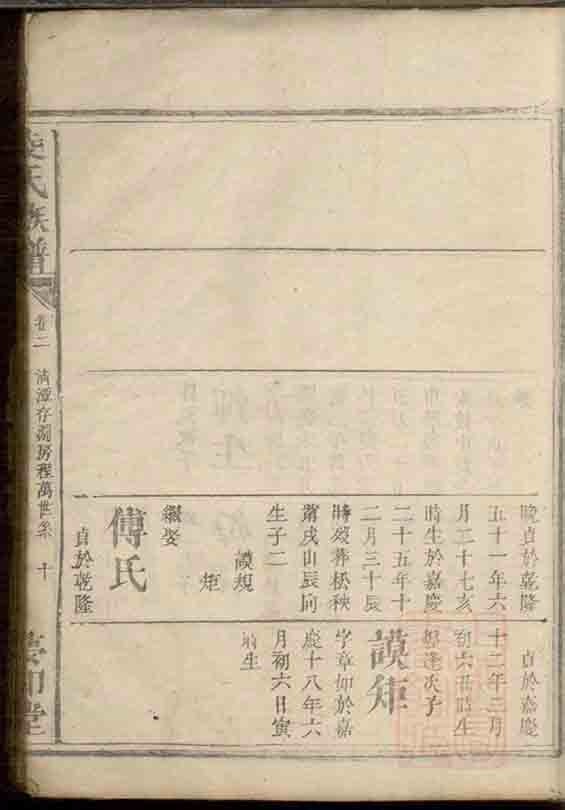 晚貞於乾隆
五十一年六
月二十七亥
時生於嘉慶
二十五年十
二月三十辰
時歿葬松秧
凿戌山辰向
生子二
謨規
矩
繼娶
傅氏
貞於乾隆
貞於嘉慶
十二年三月
初六丑時生
次子
謨矩
字章如於嘉
慶十八年六
月初六日寅
時生
氏族譜
卷二
清潭存
房程萬世系
十
堂